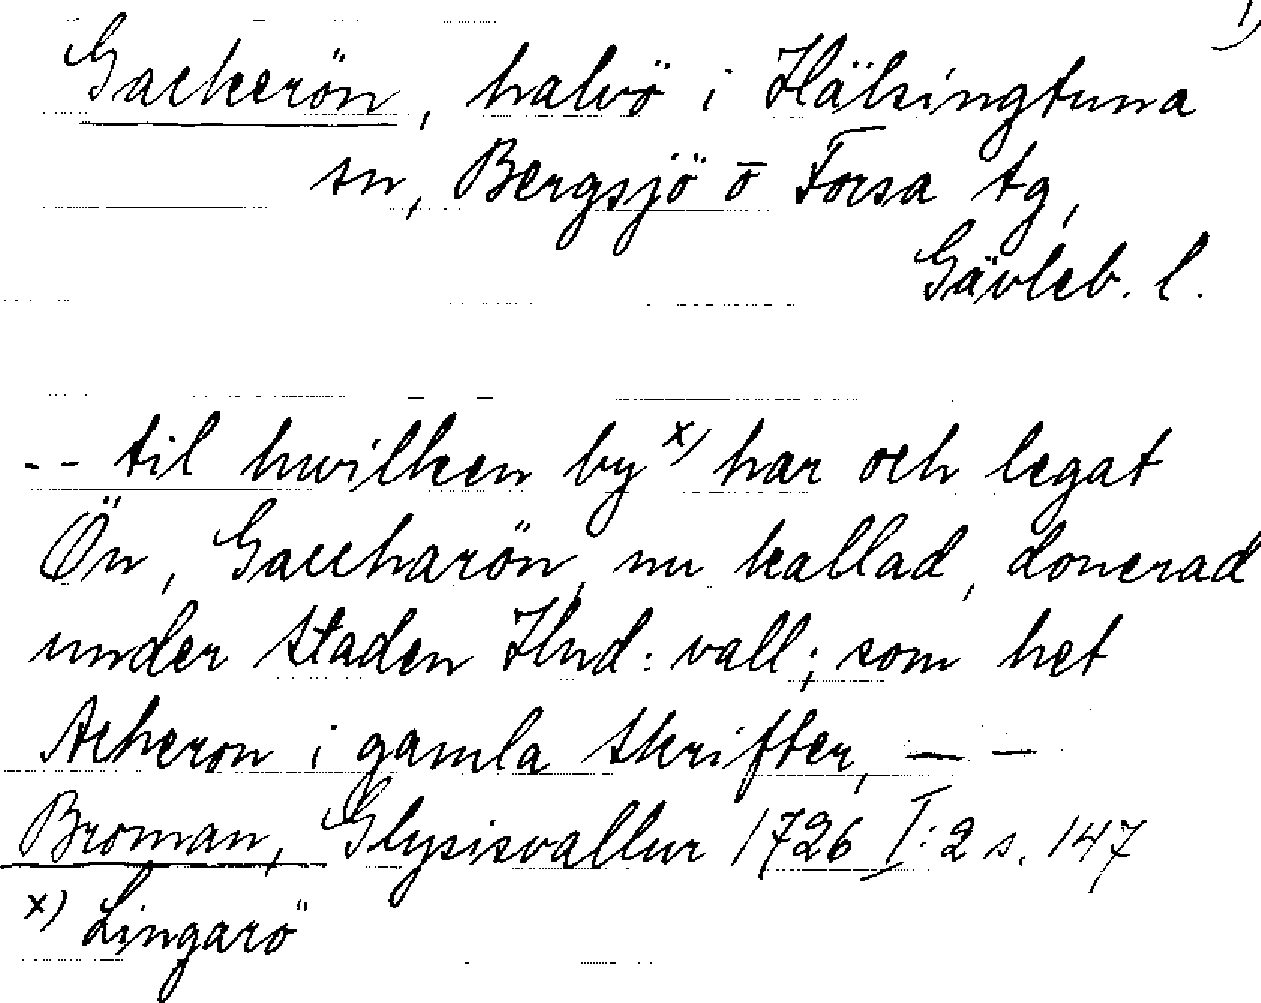 1)
Gackerön, halvö i Hälsingtuna
sn, Bergsjö o Forsa tg,
Gävleb. l.
-- til hwilken by x) har och legat
Ön, Gaccharön, nu kallad, donerad
under staden Hud: vall; som het
Acheron i gamla skrifter, — —
Broman, Glysisvallur 1726 I:2 s. 147
x) Lingarö